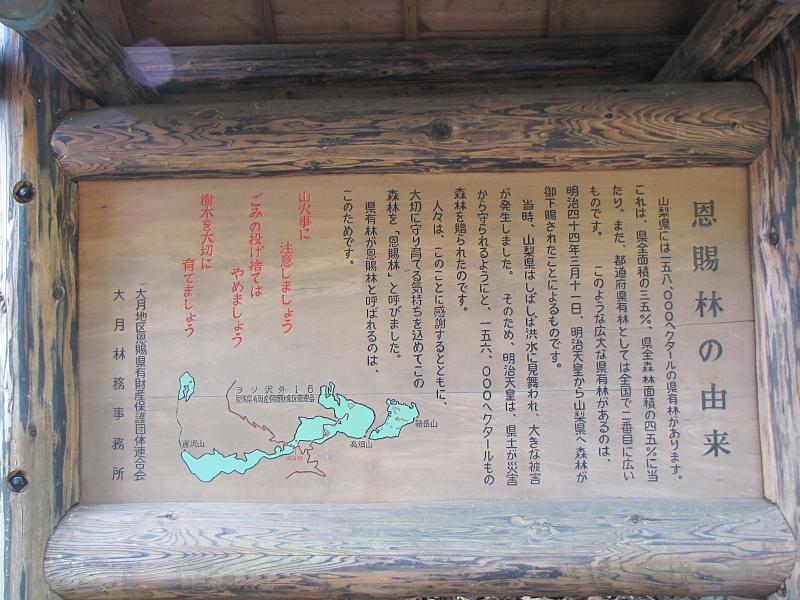 恩賜林の由来
山梨県には一五八、〇〇〇ヘクタールの県有林があります。
これは、県全面積の三五%、県全森林面積の四五%に当
たり、また、都道府県有林としては全国で二番目に広い
ものです。　このような広大な県有林があるのは、
明治四十四年三月十一日、明治天皇から山梨県へ森林が
御下賜されたことによるものです。
当時、山梨県はしばしば洪水に見舞われ、大きな被害
が発生しました。　そのため、明治天皇は、県土が災害
から守られるようにと、一五六、〇〇〇ヘクタールもの
森林を贈られたのです。
人々は、このことに感謝するとともに、
大切に守り育てる気持ちを込めてこの
森林を「恩賜林」と呼びました。
県有林が恩賜林と呼ばれるのは、
このためです。
山火事に
注意しましょう
ごみの投げ捨ては
やめましょう
樹木を大切に
育てましょう
大月地区恩賜県有財産保護団体連合会
大月林務事務所
ヲソ沢外16
恩賜県有財産保護組合管理会
鞍岳山
高畑山